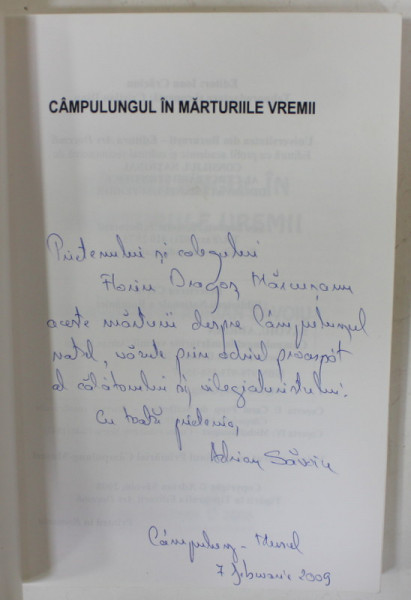 CÂMPULUNGUL ÎN MĂRTURIILE VREMII
Prietenului și colegului
Florin Dragoș
aceste mărturii despre Câmpulungul
natal, văzute prin ochiul proaspăt
al călătorului și vilegiaturistului.
Cu toată prietenia,
Adrian Săvoiu
Câmpulung - Muscel
7 februarie 2009